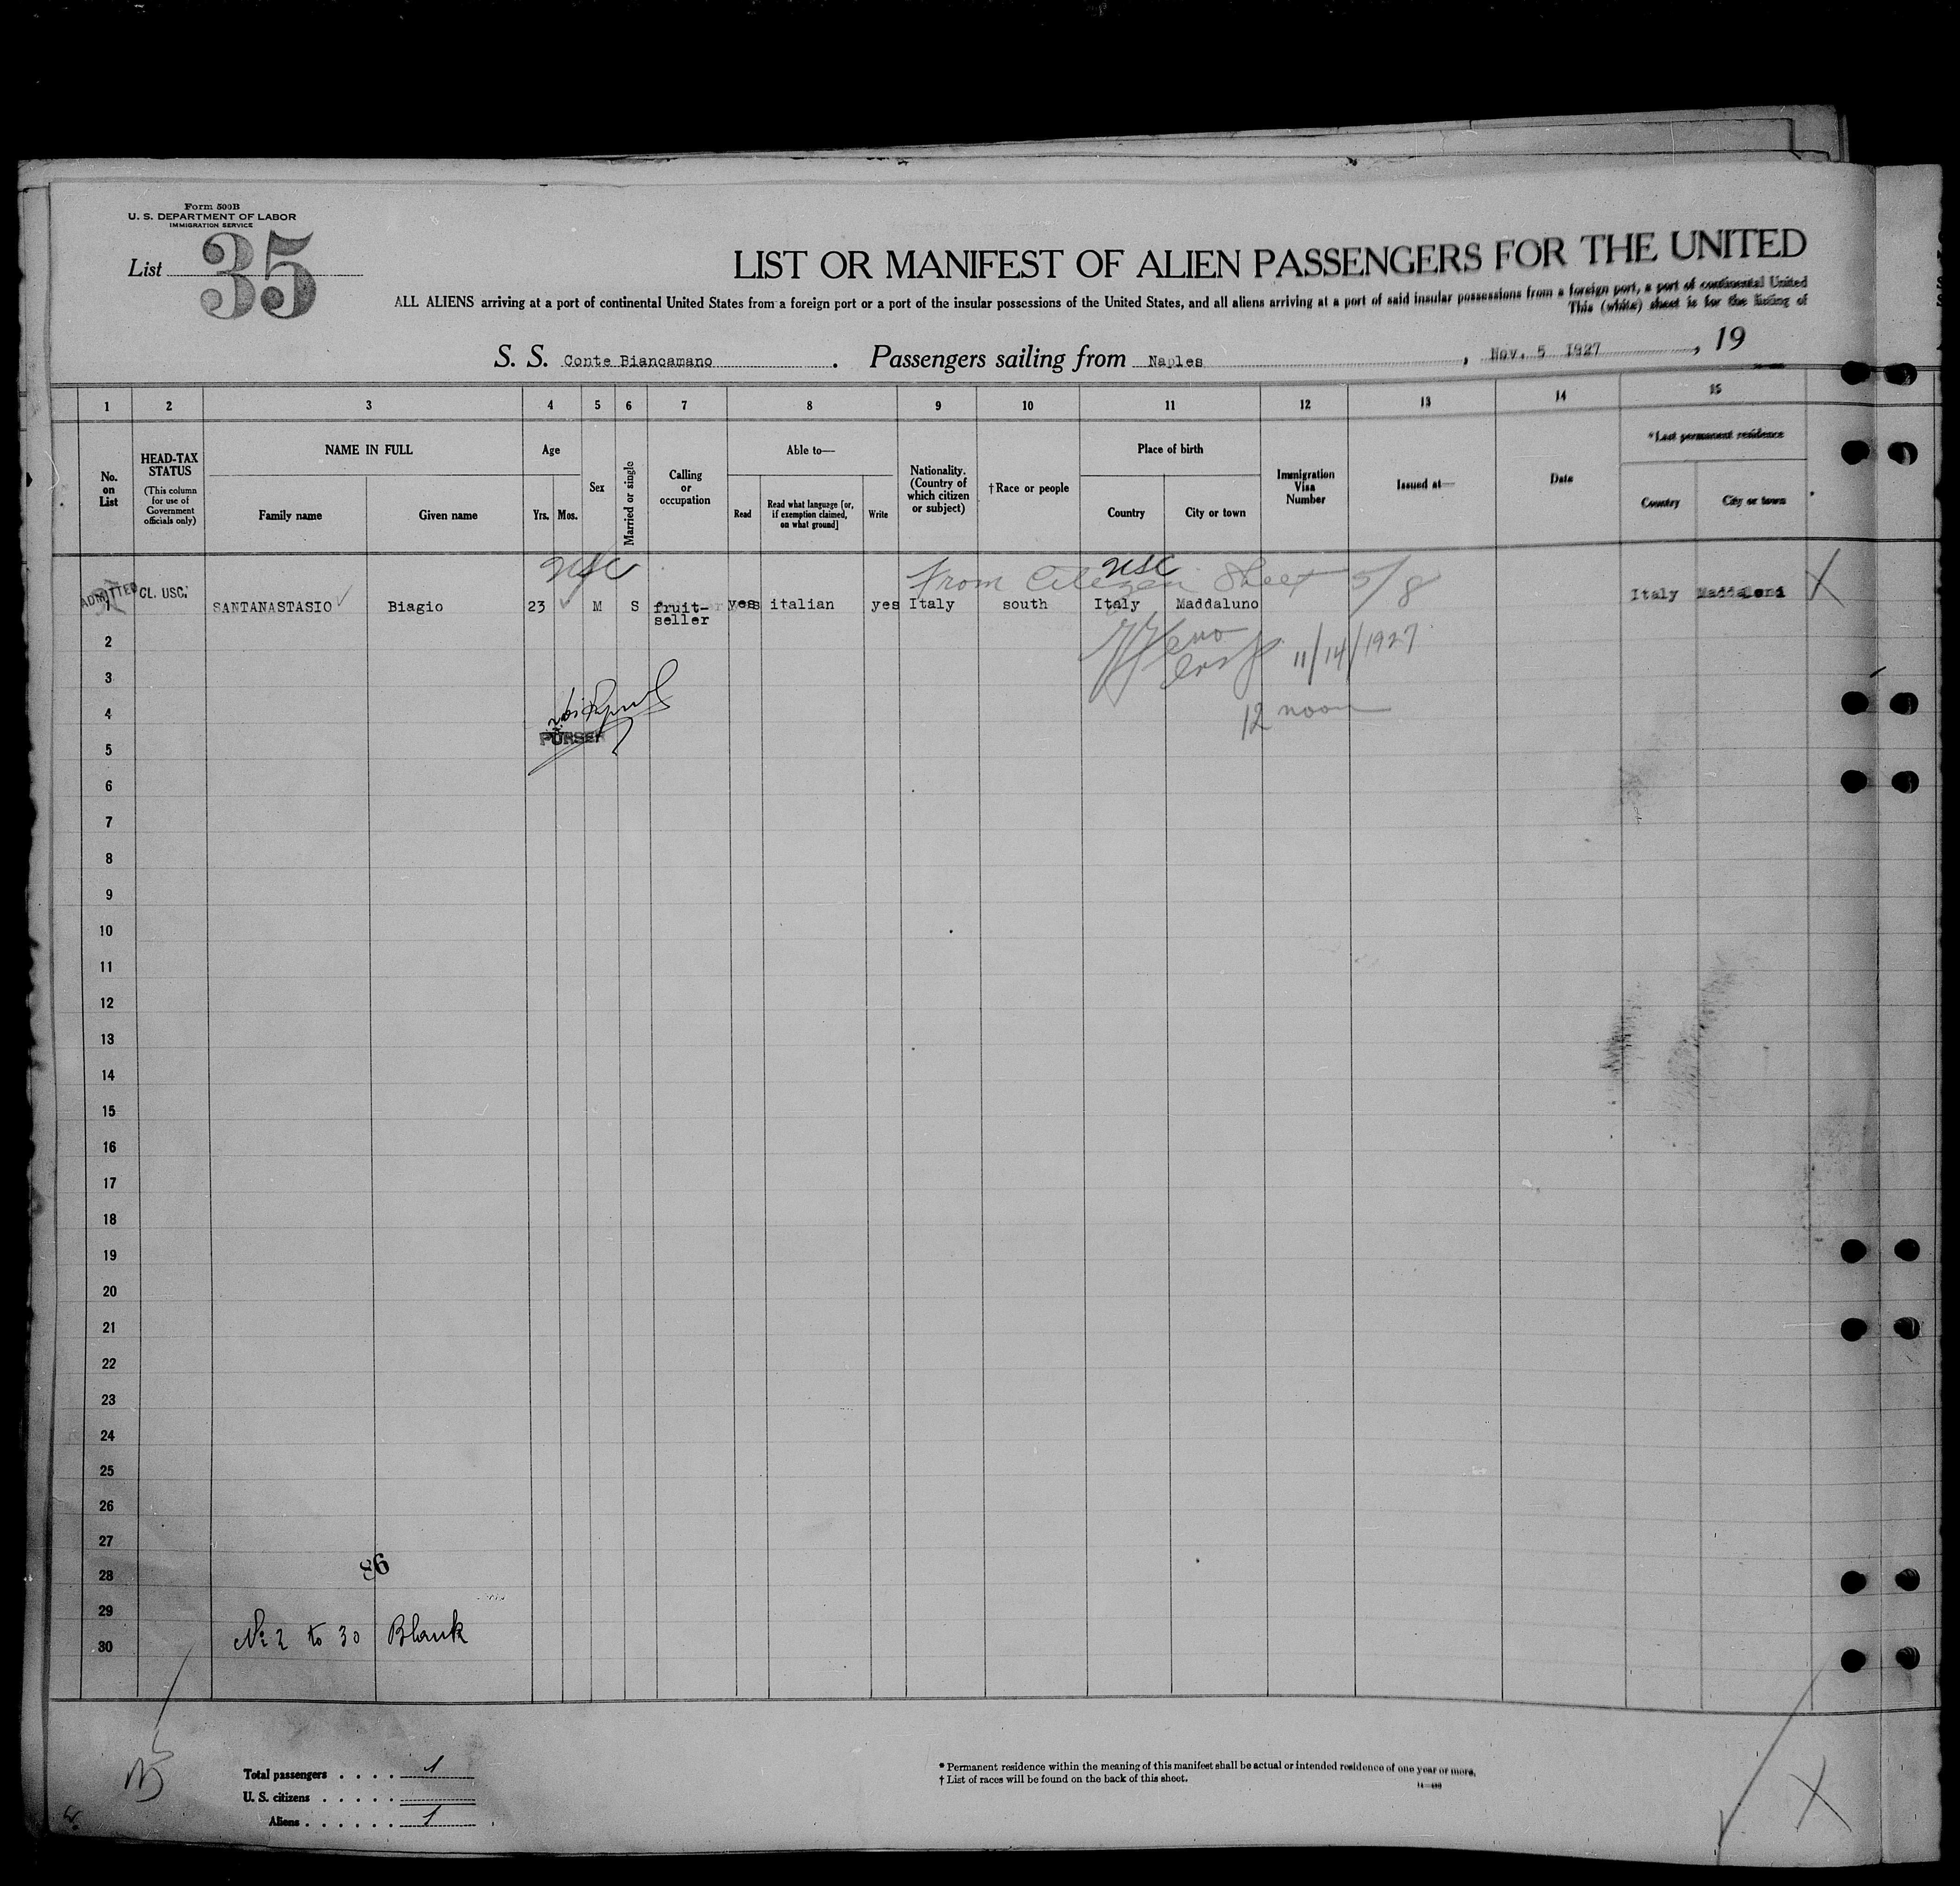 Form 500B
U. S. DEPARTMENT OF LABOR
IMMIGRATION SERVICE
List 35
LIST OR MANIFEST OF ALIEN PASSENGERS FOR THE UNITED
ALL ALIENS arriving at a port of continental United States from a foreign port or a port of the insular possessions of the United States, and all aliens arriving at a port of said insular possessions from a foreign port, a port of continental United
This (white) sheet is for the listing of
S. S. Conte Biancamano. Passengers sailing from Naples, Nov. 5 1927, 19
1 2 3 4 5 6 7 8 9 10 11 12 13 14 15
No. on List
HEAD-TAX STATUS
(This column for use of Government officials only)
NAME IN FULL
Family name
Given name
Age
Yrs.
Mos.
Sex
Married or single
Calling or occupation
Able to—
Read
Read what language [or, if exemption claimed, on what ground]
Write
Nationality. (Country of which citizen or subject)
†Race or people
Place of birth
Country
City or town
Immigration Visa Number
Issued at—
Date
*Last permanent residence
Country
City or town
USC
USC
From Citizen Sheet 5/8
ADMITTED
1 CL. USC. SANTANASTASIO Biagio 23 M S fruit-seller yes italian yes Italy south Italy Maddaluno Italy Maddaloni X
2
11/14/1927
3
4
12 noon
PURSER
5
6
7
8
9
10
11
12
13
14
15
16
17
18
19
20
21
22
23
24
25
26
27
86
28
29
No 2 to 30 Blank
30
Total passengers . . . . 1
U. S. citizens . . . . .
Aliens . . . . . . 1
* Permanent residence within the meaning of this manifest shall be actual or intended residence of one year or more.
† List of races will be found on the back of this sheet.
X